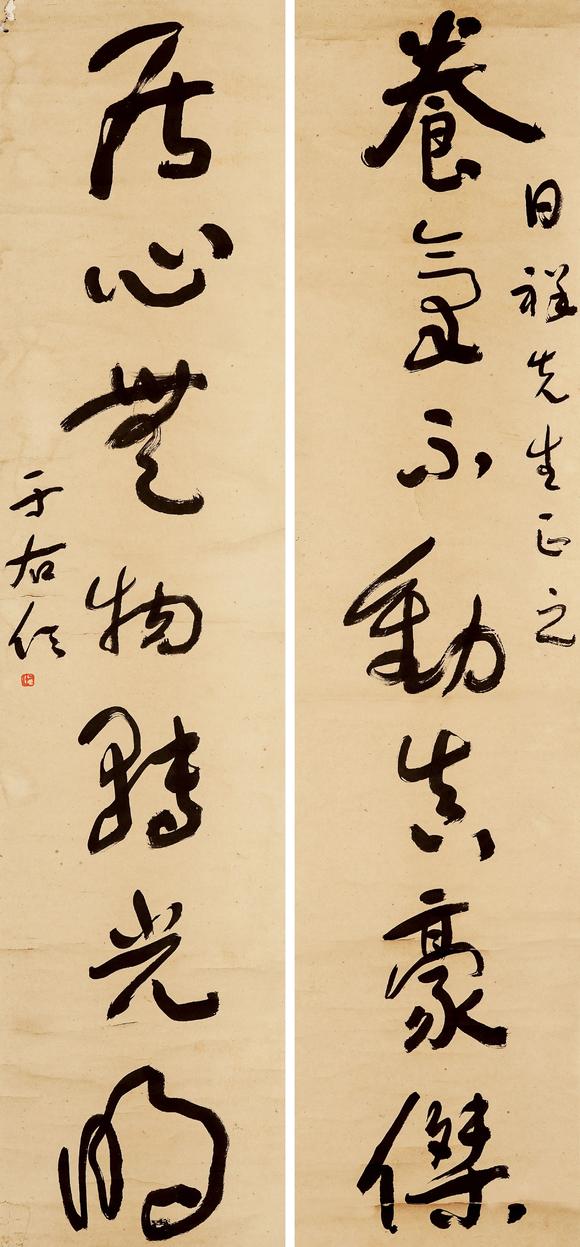 日祥先生正之
養氣不動真豪傑
居心無物轉光明
于右任